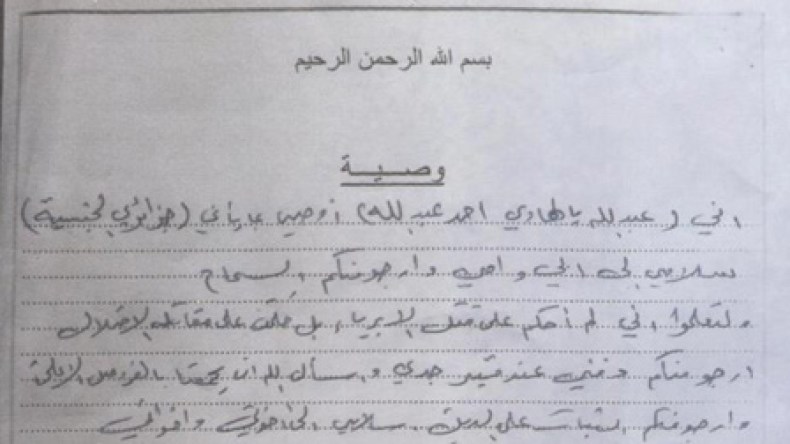 بسم الله الرحمن الرحيم
وصية
اني (عبدلله بالهادي احمد عبدلله) أوصي بما يأتي (جزائري الجنسية)
سلامي إلى ابي وامي وارجو منكم السماح
ولتعلموا اني لم أحكم على قتل الابرياء بل حكمت على مقاتلة الاحتلال
ارجو منكم دفني عند قبر جدي واسأل الله ان يجمعنا بالفردوس الاعلى
وارجو منكم الثبات على الدين سلامي الى اخوتي واخواتي